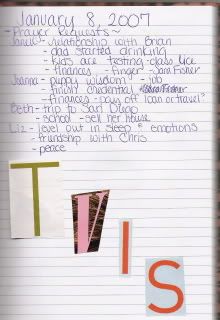 January 8, 2007
~Prayer Requests~
- relationship with Brian
- dad started drinking
- kids are testing - class lice
- finances - finger - Sara Fisher
Joanna - puppy wisdom - job
- finish credential Sara Fisher
- finances - pay off loan or travel?
Beth - trip to San Diego
- school - sell her house
Liz - level out in sleep & emotions
- friendship with Chris
- peace
T
V
I
S